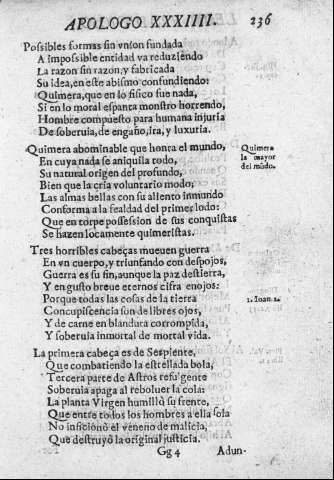 APOLOGO XXXIIII. 236
Possibles formas sin vnion fundada
A impossible entidad va reduziendo
La razon sin razon, y fabricada
Su idea, en este abismo confundiendo:
Quimera, que en lo fisico fue nada,
Si en lo moral espanta monstro horrendo,
Hombre compuesto para humana injuria
De soberuia, de engaño, ira, y luxuria.
Quimera abominable que honra el mundo,
En cuya nada se aniquila todo,
Su natural origen del profundo,
Bien que la cria voluntario modo,
Las almas bellas con su aliento inmundo
Conforma a la fealdad del primer lodo:
Que en torpe possession de sus conquistas
Se hazen locamente quimeristas.
Quimera
la mayor
del mũdo.
Tres horribles cabeças mueuen guerra
En vn cuerpo, y triunfando con despojos,
Guerra es su fin, aunque la paz destierra,
Y en gusto breue eternos cifra enojos:
Porque todas las cosas de la tierra
Concupiscencia son de libres ojos,
Y de carne en blandura corrompida,
Y soberuia inmortal de mortal vida.
1. Ioan 2.
La primera cabeça es de Serpiente,
Que combatiendo la estrellada bola,
Tercera parte de Astros refulgente
Soberuia apaga al reboluer la cola:
La planta Virgen humillò su frente,
Que entre todos los hombres a ella sola
No inficionò el veneno de malicia,
Que destruyò la original justicia.
Gg 4 Adun-